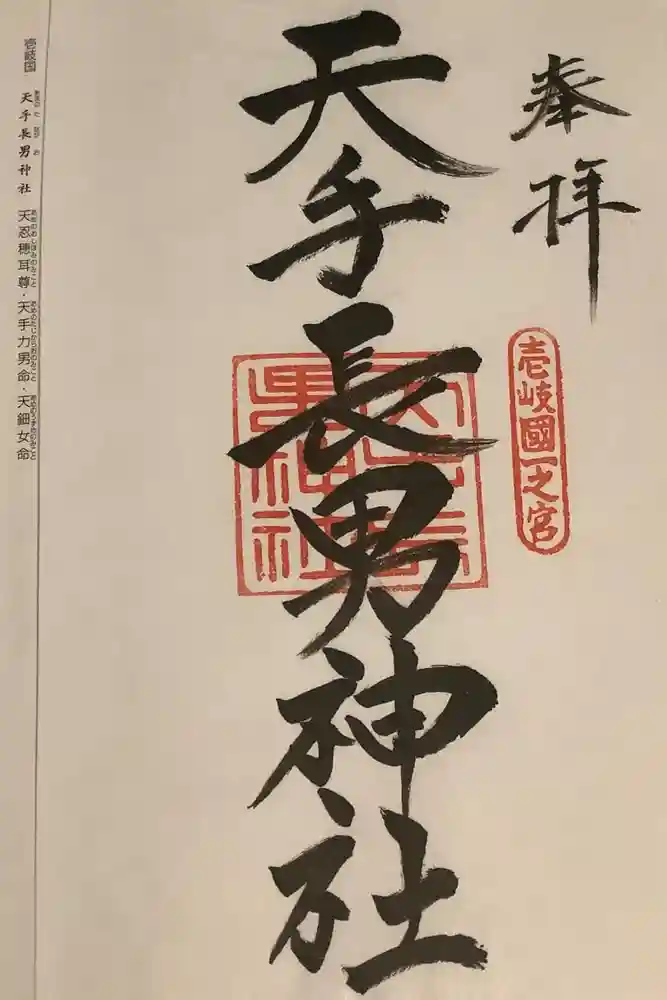 奉拝
壱岐國一之宮
天手長男神社
壱岐国 天手長男神社 天忍穂耳尊・天手力男命・天鈿女命